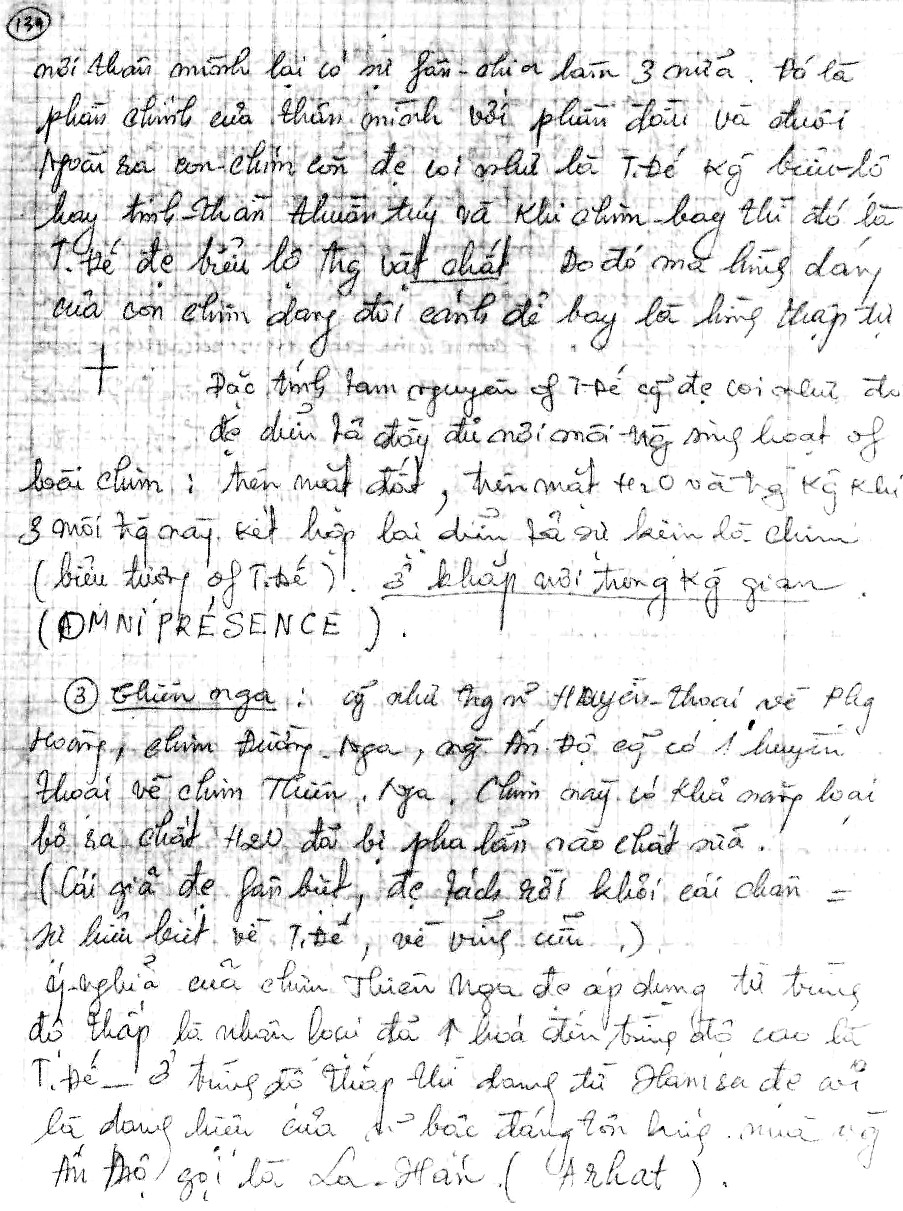 139
nơi thân mình lại có sự fân-chia làm 3 nữa. Đó là
phần chính của thân mình với phần đầu và đuôi
Ngoài ra con-chim còn đc coi như là T.Đế Kg biểu-lộ
hay tinh-thần thuần túy và khi chim bay thì đó là
T.Đế đc biểu lộ tng vật chất Do đó mà hình dáng
của con chim dang đôi cánh để bay là hình thập tự
+
Đặc tính tam nguyên of T.Đế cg đc coi như
đc diển tả đầy đủ nơi môi-trg sing hoạt of
loài chim : trên mặt đất, trên mặt H2O và tng Kg Khí
3 môi trg này kết hợp lại diển tả sự kiện là chim
(biểu tượng of T.Đế). ở khắp nơi trong Kg gian.
(OMNIPRÉSENCE).
③ Thiên nga : cg như tng Huyền-thoại về Phg
Hoàng, chim Đường-Nga, ng Ấn Độ cg có 1 huyền
thoại về chim Thiên Nga. Chim này có khả năng loại
bỏ ra chất H2O đã bị pha lẩn vào chất sữa.
(Cái giả đc fân biệt, đc tách rời khỏi cái chân =
sự hiểu biết về T.Đế, về vỉng cửu.)
Ý-nghỉa của chim Thiên Nga đc áp dụng từ trình
độ thấp là nhân loại đã ↑ hoá đến trình độ cao là
T.Đế_ ở trình độ thấp thì dang từ Hamsa đc coi
là dang hiệu của bậc đáng tôn kíng mà ng
Ấn Độ gọi là La-Hán (Arhat).